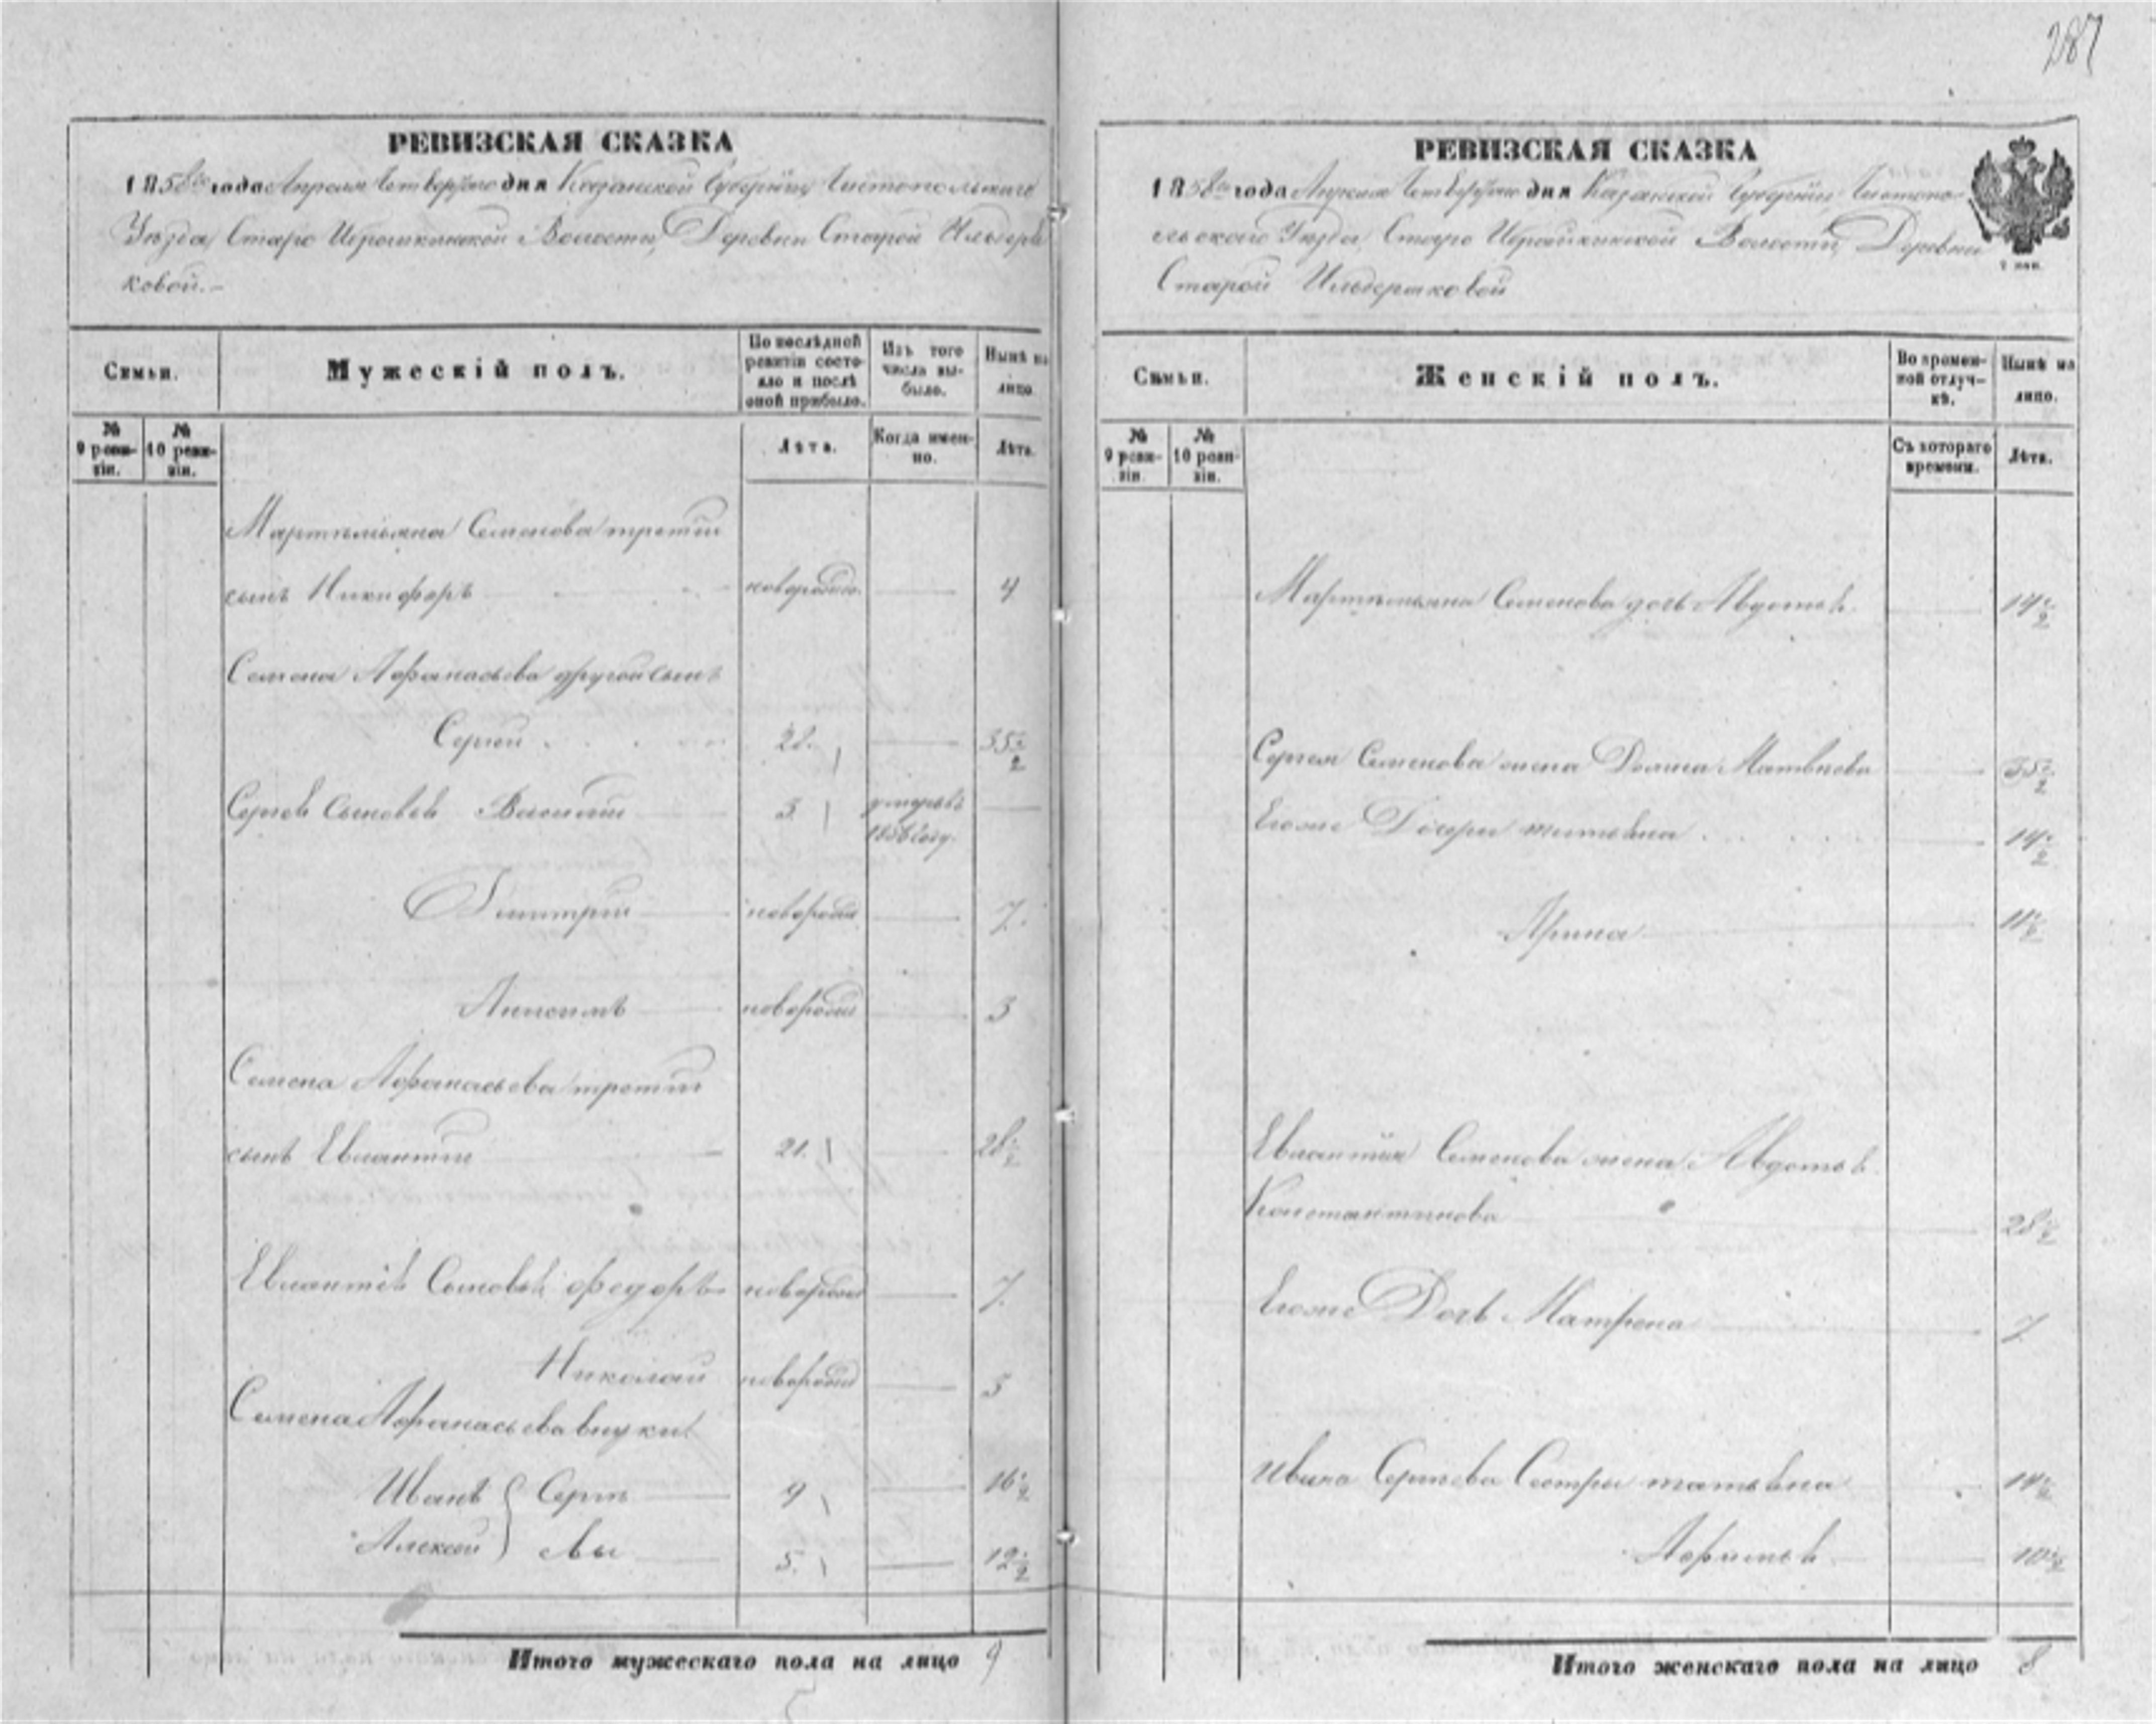 287
РЕВИЗСКАЯ СКАЗКА
1858го года Апреля Четвертого дня Казанской Губернии, Чистопольского
Уезда, Старо Ибрайкинской Волости, Деревни Старой Ильдеря
ковой.-
Семьи.
Мужескій полъ.
По послѣдной ревизіи состо-
яло и послѣ
оной прибыло.
Изъ того
числа вы-
было.
Нынѣ на
лицо.
№
9 реви-
зіи.
№
10 реви-
зіи.
Лѣта.
Когда имен-
но.
Лѣта.
Семенова третий
сынъ Никифоръ новорожд. 4
Семена Афанасьева другой сынъ
Сергей 28. 35 1/2
Сергея Сыновья Василий 3. умеръ въ 1856 году.
Дмитрий новорожд 7.
Анисимъ новорожд 3
Семена Афанасьева третий
сынъ Евлантий 21. 28 1/2
Сыновья Федоръ новорожд 7.
Николай новорожд 3
Семена Афанасьева внуки
Иванъ Серге 9 16 1/2
Алексей евы 5. 12 1/2
Итого мужескаго пола на лицо 9
РЕВИЗСКАЯ СКАЗКА
1858го года Апреля Четвертого дня Казанской Губернии, Чистопо-
льского Уезда, Старо Ибрайкинской Волости, Деревни
Старой Ильдеряковой
Семьи.
Женскій полъ.
Во времен-
ной отлуч-
кѣ.
Нынѣ на
лицо.
№
9 реви-
зіи.
№
10 реви-
зіи.
Съ котораго
времени.
Лѣта.
Семенова дочь Авдотья 14 1/2
Сергея Семенова жена Матвеева 35 1/2
Егоже Дочери Татьяна 14 1/2
Арина 11 1/2
Семенова жена Авдотья
Константинова 28 1/2
Егоже Дочь Матрена 7.
Ивана Сергеева Сестры татьяна 14 1/2
10 1/2
Итого женскаго пола на лицо 8